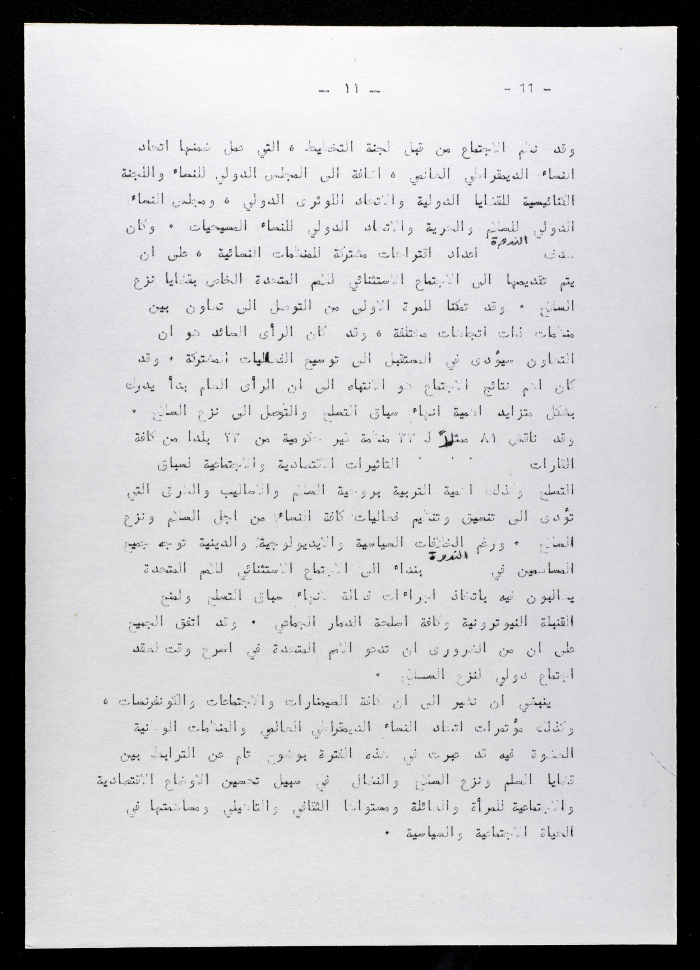 - 11 -
- ١١ -
وقد نظم الاجتماع من قبل لجنة التخطيط ، التي عمل ضمنها اتحاد
النساء الديمقراطي العالمي ، اضافة الى المجلس الدولي للنساء واللجنة
الكنائيسية للقضايا الدولية والاتحاد اللوثرى الدولي ، ومجلس النساء
الدولي للسلام والحرية والاتحاد الدولي للنساء المسيحيات . وكان
هدف الندوة اعداد اقتراحات مشتركة للمنظمات النسائية ، على ان
يتم تقديمها الى الاجتماع الاستثنائي للامم المتحدة الخاص بقضايا نزع
السلاح . وقد تمكنا للمرة الاولى من التوصل الى تعاون بين
منظمات ذات اتجاهات مختلفة ، وقد كان الرأى السائد هو ان
التعاون سيؤدى في المستقبل الى توسيع الفعاليات المشتركة . وقد
كان اهم نتائج الاجتماع هو الانتباه الى ان الرأى العام بدأ يدرك
بشكل متزايد اهمية انهاء سباق التسلح والتوصل الى نزع السلاح .
وقد ناقش ٨١ ممثلاً لـ ٣٣ منظمة غير حكومية من ٢٣ بلدا من كافة
القارات التاثيرات الاقتصادية والاجتماعية لسباق
التسلح وكذلك اهمية التربية بروحية السلام والاساليب والطرق التي
تؤدى الى تنسيق وتنظيم فعاليات كافة النساء من اجل السلام ونزع
السلاح . ورغم الخلافات السياسية والايديولوجية والدينية توجه جميع
المساهمين في الندوة بنداء الى الاجتماع الاستثنائي للامم المتحدة
يطالبون فيه باتخاذ اجراءات فعالة لانهاء سباق التسلح ولمنع
القنبلة النيوترونية وكافة اسلحة الدمار الجماعي . وقد اتفق الجميع
على ان من الضرورى ان تدعو الامم المتحدة في اسرع وقت لعقد
اجتماع دولي لنزع السلاح .
ينبغي ان نشير الى ان كافة السيمنارات والاجتماعات والكونفرنسات ،
وكذلك مؤتمرات اتحاد النساء الديمقراطي العالمي والمنظمات الوطنية
العضوة فيه قد عبرت في هذه الفترة بوضوح تام عن الترابط بين
قضايا السلم ونزع السلاح والنضال في سبيل تحسين الاوضاع الاقتصادية
والاجتماعية للمرأة والعائلة ومستواها الثقافي والتاهيلي ومساهمتها في
الحياة الاجتماعية والسياسية .